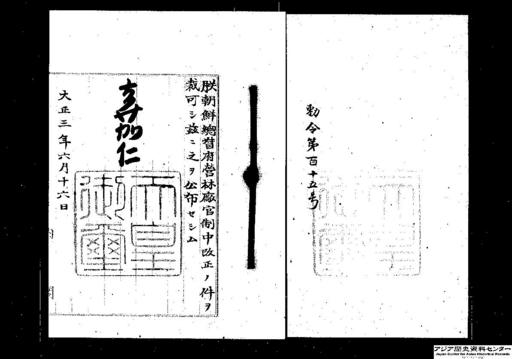 勅令第百十五号
朕朝鮮總督府営林廠官制中改正ノ件ヲ
裁可シ茲ニ之ヲ公布セシム
嘉仁
天皇
御璽
大正三年六月十六日
内閣
アジア歴史資料センター
Japan Center for Asian Historical Records